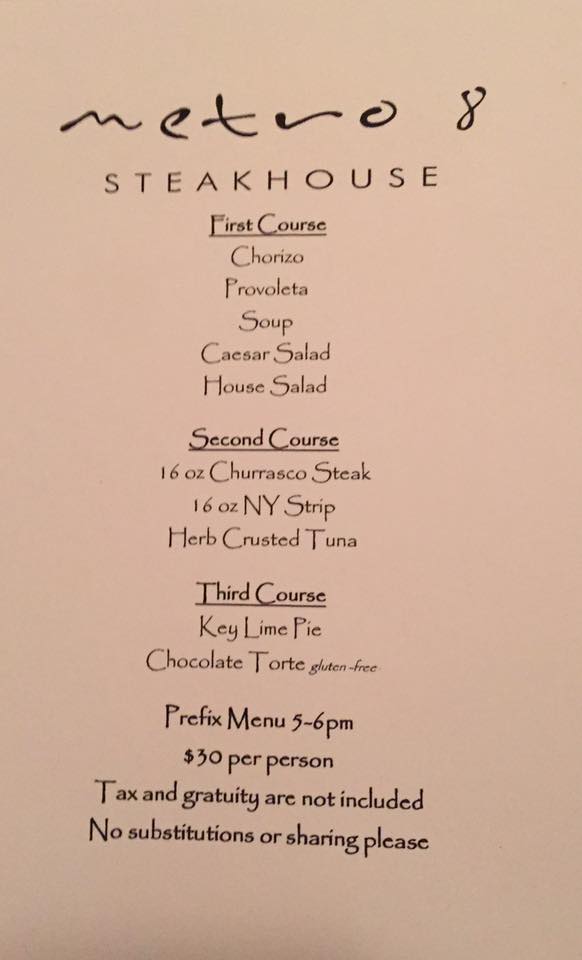 metro 8
STEAKHOUSE
First Course
Chorizo
Provoleta
Soup
Caesar Salad
House Salad
Second Course
16 oz Churrasco Steak
16 oz NY Strip
Herb Crusted Tuna
Third Course
Key Lime Pie
Chocolate Torte gluten-free
Prefix Menu 5-6pm
$30 per person
Tax and gratuity are not included
No substitutions or sharing please